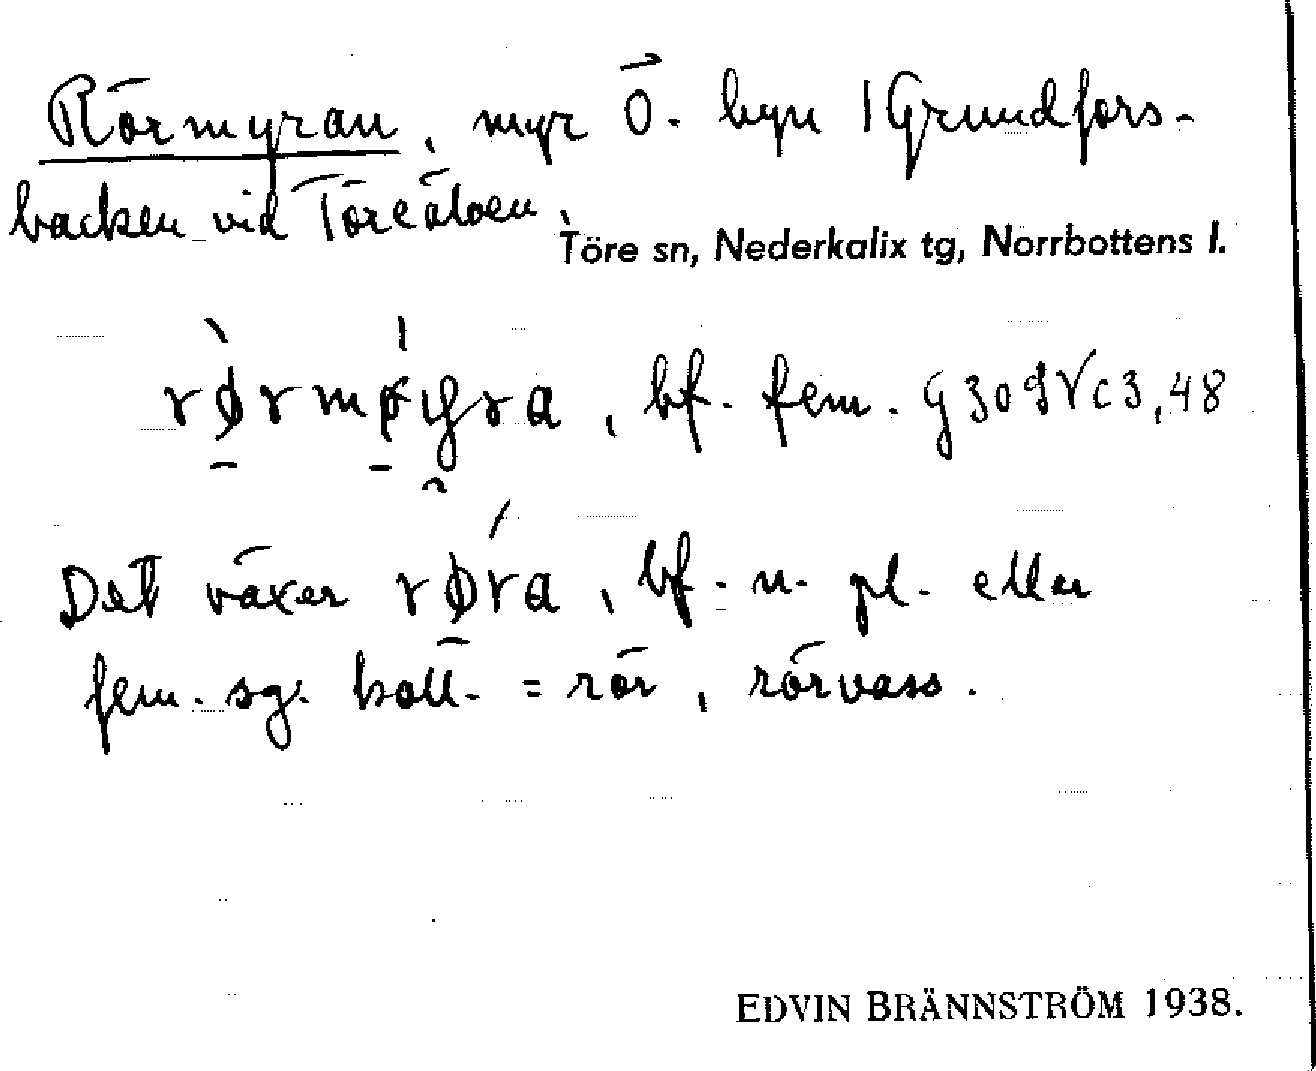 Rörmyran, myr Ö. byn i Grundfors-
backen vid Töreälven,
Töre sn, Nederkalix tg, Norrbottens l.
rørmøyra, bf. fem.
Det växer røra, bf. n. pl. eller
fem. sg. koll. = rör, rörvass.
EDVIN BRÄNNSTRÖM 1938.